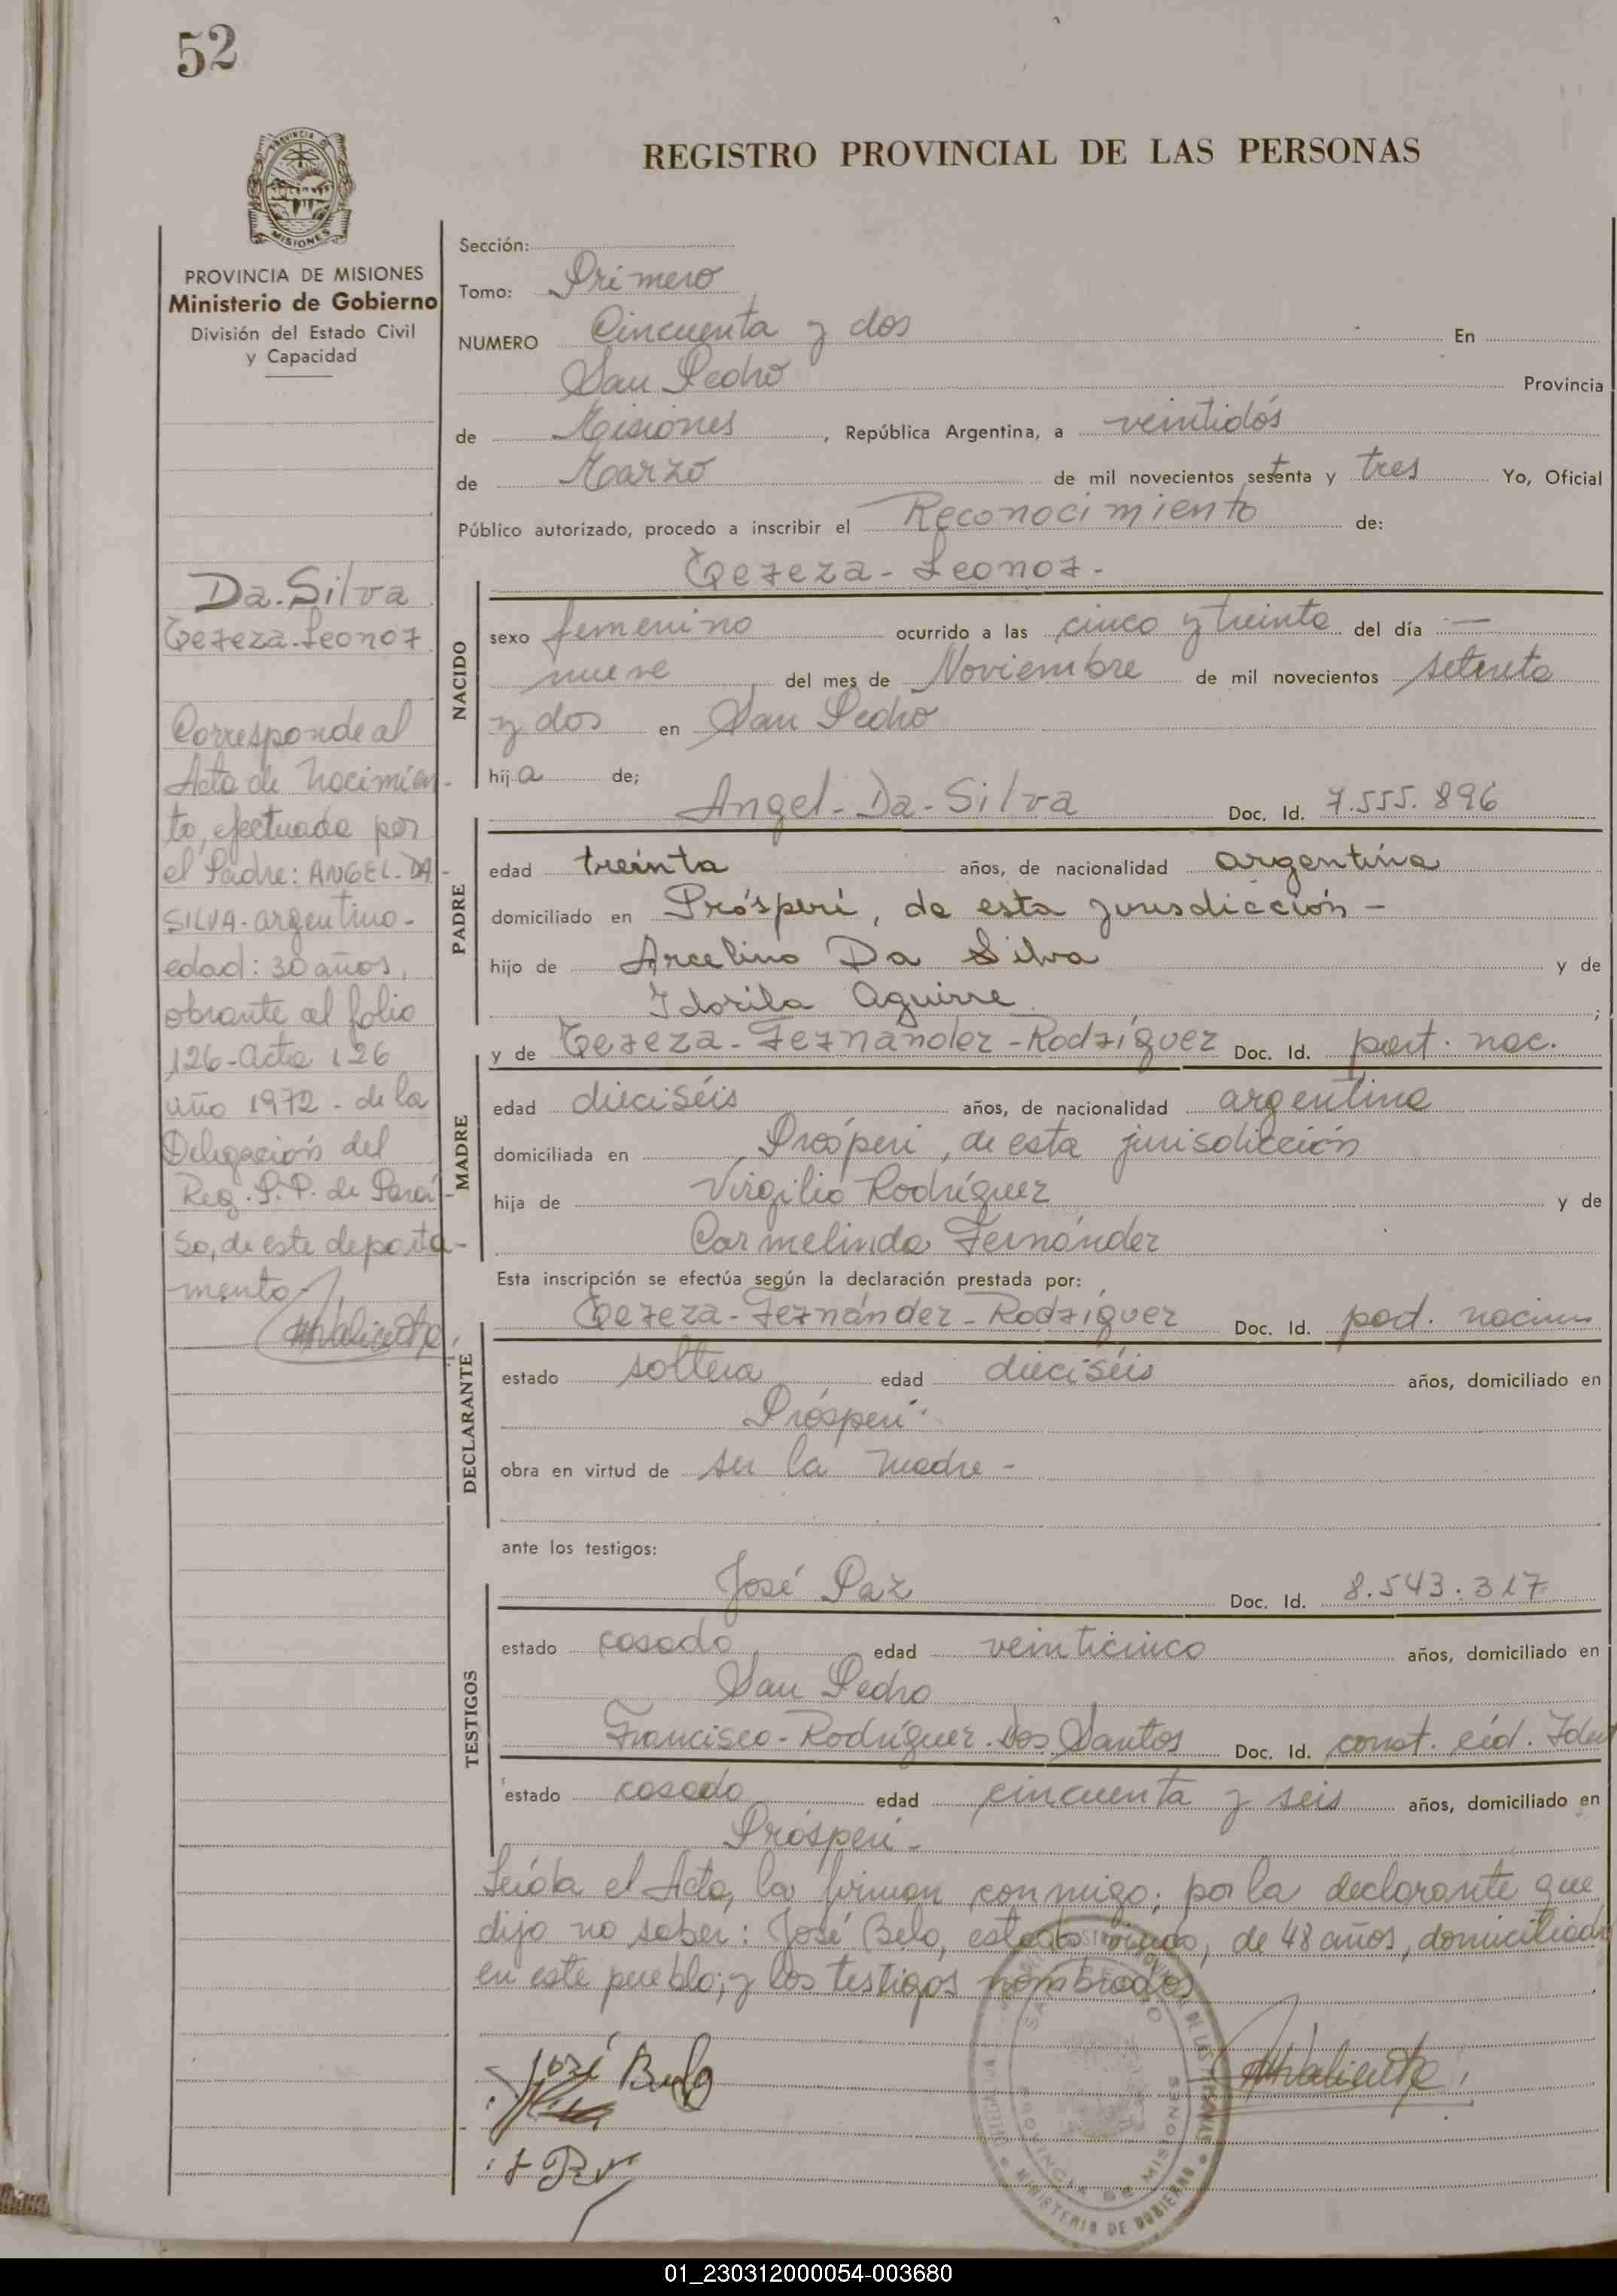 52
REGISTRO PROVINCIAL DE LAS PERSONAS
PROVINCIA DE MISIONES
Ministerio de Gobierno
División del Estado Civil
y Capacidad
Da-Silva
Tereza-Leonor
Corresponde al
Acta de Nacimien-
to, efectuada por
el Padre: ANGEL-DA-
SILVA-argentino-
edad: 30 años,
obrante al folio
126-acta 126
año 1972-de la
Delegación del
Reg. P.P. de Paraí-
so, de este departa-
mento-
Sección:
Tomo: Primero
NUMERO Cincuenta y dos En
San Pedro Provincia
de Misiones, República Argentina, a veintidós
de Marzo de mil novecientos setenta y tres Yo, Oficial
Público autorizado, procedo a inscribir el Reconocimiento de:
Tereza-Leonor-
NACIDO
sexo femenino ocurrido a las cinco y treinta del día —
nueve del mes de Noviembre de mil novecientos setenta
y dos en San Pedro
hija de;
Angel-Da-Silva Doc. Id. 7.555.896
PADRE
edad treinta años, de nacionalidad argentina
domiciliado en Prósperi, de esta jurisdicción-
hijo de Arcelino Da Silva y de
Idorila Aguirre;
y de Tereza-Fernández-Rodríguez Doc. Id. part. nac.
MADRE
edad dieciséis años, de nacionalidad argentina
domiciliada en Prósperi, de esta jurisdicción
hija de Virgilio Rodríguez y de
Carmelinda Fernández
Esta inscripción se efectúa según la declaración prestada por:
Tereza-Fernández-Rodríguez Doc. Id. part. nacim
DECLARANTE
estado soltera edad dieciséis años, domiciliado en
Prósperi-
obra en virtud de ser la madre-
ante los testigos:
José Paz Doc. Id. 8.543.317
TESTIGOS
estado casado edad veinticinco años, domiciliado en
San Pedro
Francisco-Rodríguez-Dos Santos Doc. Id. const. céd. Ident
estado casado edad cincuenta y seis años, domiciliado en
Prósperi-
Leída el Acta, la firman conmigo; por la declarante que
dijo no saber: José Belo, estado viudo, de 48 años, domiciliado
en este pueblo; y los testigos nombrados
José Belo
MINISTERIO DE GOBIERNO
PROVINCIA DE MISIONES
01_230312000054-003680